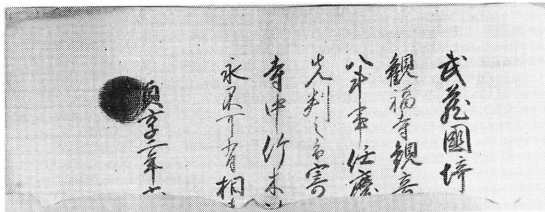 武蔵國埼
観福寺観音
八斗事任慶
先判之旨寄
寺中竹木
永不可有相
貞享二年